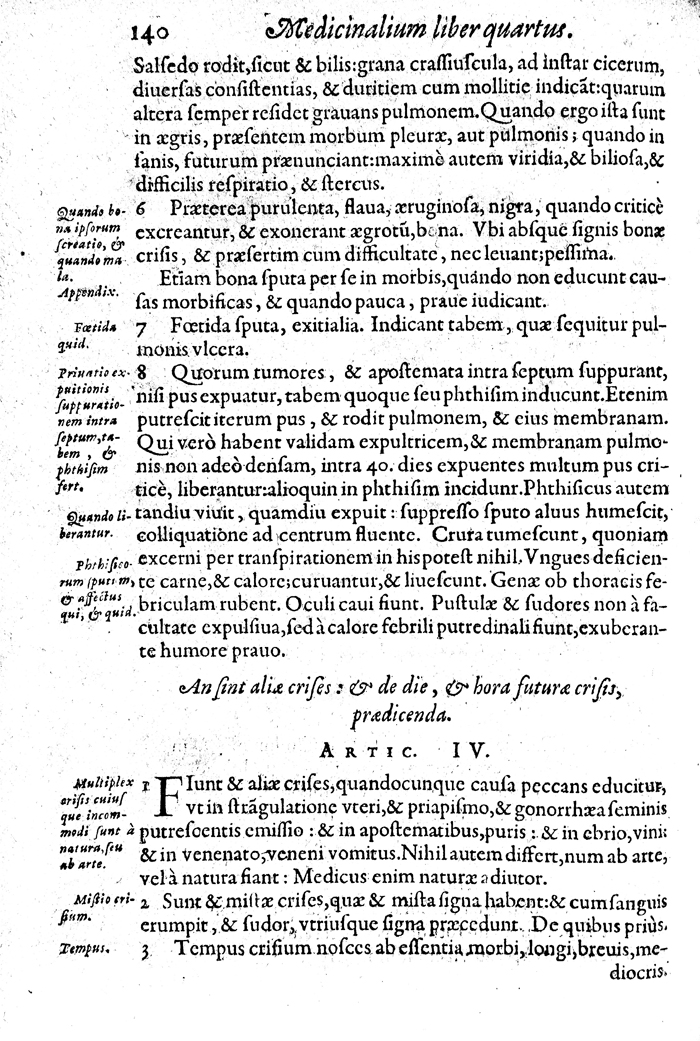 140 Medicinalium liber quartus.
Salſedo rodit, ſicut & bilis: grana craſſiuſcula, ad inſtar cicerum,
diuerſas conſiſtentias, & duritiem cum mollitie indicãt: quarum
altera ſemper reſidet grauans pulmonem. Quando ergo iſta ſunt
in ægris, præſentem morbum pleuræ, aut pulmonis; quando in
ſanis, futurum prænunciant: maximè autem viridia, & bilioſa, &
difficilis reſpiratio, & ſtercus.
Quando bo-
na ipſorum
ſcreatio, &
quando ma-
la.
Appendix.
6 Præterea purulenta, flaua, æruginoſa, nigra, quando criticè
excreantur, & exonerant ægrotũ, bona. Vbi abſque ſignis bonæ
criſis, & præſertim cum difficultate, nec leuant; peſſima.
Etiam bona ſputa per ſe in morbis, quando non educunt cau-
ſas morbificas, & quando pauca, praue iudicant.
Fœtida
quid.
7 Fœtida ſputa, exitialia. Indicant tabem, quæ ſequitur pul-
monis vlcera.
Priuatio ex-
puitionis
ſuppuratio-
nem intra
ſeptum, ta-
bem, &
phthiſim
fert.
8 Quorum tumores, & apoſtemata intra ſeptum ſuppurant,
niſi pus expuatur, tabem quoque ſeu phthiſim inducunt. Etenim
putreſcit iterum pus, & rodit pulmonem, & eius membranam.
Qui verò habent validam expultricem, & membranam pulmo-
nis non adeò denſam, intra 40. dies expuentes multum pus cri-
ticè, liberantur: alioquin in phthiſim incidunr. Phthiſicus autem
Quando li-
berantur.
tandiu viuit, quamdiu expuit: ſuppreſſo ſputo aluus humeſcit,
colliquatione ad centrum fluente. Crura tumeſcunt, quoniam
Phthiſico-
rum ſputum,
& affectus
qui, & quid.
excerni per tranſpirationem in his poteſt nihil. Vngues deficien-
te carne, & calore; curuantur, & liueſcunt. Genæ ob thoracis fe-
briculam rubent. Oculi caui fiunt. Puſtulæ & ſudores non à fa-
cultate expulſiua, ſed à calore febrili putredinali fiunt, exuberan-
te humore prauo.
An ſint aliæ criſes: & de die, & hora futuræ criſis,
prædicenda.
ARTIC. IV.
Multiplex
criſis cuiuſ
que incom-
modi ſunt à
natura, ſeu
ab arte.
1 FIunt & aliæ criſes, quandocunque cauſa peccans educitur,
vt in ſtrãgulatione vteri, & priapiſmo, & gonorrhæa ſeminis
putreſcentis emiſſio: & in apoſtematibus, puris: & in ebrio, vini:
& in venenato, veneni vomitus. Nihil autem differt, num ab arte,
vel à natura fiant: Medicus enim naturæ adiutor.
Miſtio cri-
ſium.
2 Sunt & miſtæ criſes, quæ & miſta ſigna habent: & cum ſanguis
erumpit, & ſudor, vtriuſque ſigna præcedunt. De quibus priùs.
Tempus.
3 Tempus criſium noſces ab eſſentia morbi, longi, breuis, me-
diocris.